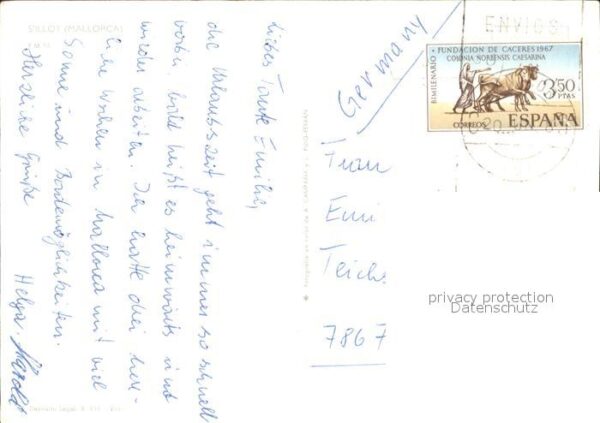 S'ILLOT (MALLORCA)
Liebes Tante Emilie,
die Urlaubszeit geht immer so schnell
vorbei bald heißt es heimwärts und
wieder arbeiten. Ich hatte drei herr-
liche Wochen in Mallorca mit viel
Sonne und Bademöglichkeiten.
Herzliche Grüße
Helga. Harald
Germany
Frau
Emi
Teichs
7867
ENVIOS
FUNDACION DE CACERES 1967
COLONIA NORBENSIS CAESARINA
BIMILENARIO
3,50
PTAS
CORREOS ESPAÑA
privacy protection
Datenschutz